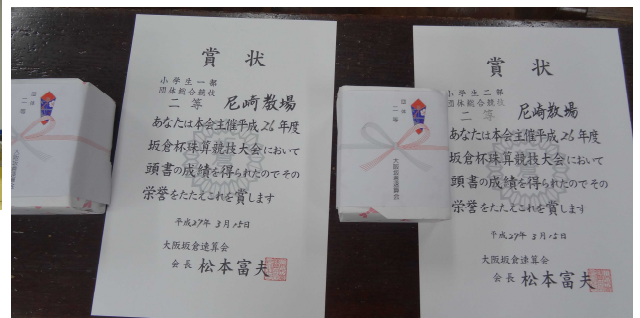 賞状
小学生一部
団体総合競技
二等 尼崎教場
あなたは本会主催平成26年度
坂倉杯珠算競技大会において
頭書の成績を得られたのでその
栄誉をたたえこれを賞します
平成27年3月15日
大阪坂倉速算会
会長 松本富夫
団体
二等
大阪坂倉速算会
賞状
小学生二部
団体総合競技
二等 尼崎教場
あなたは本会主催平成26年度
坂倉杯珠算競技大会において
頭書の成績を得られたのでその
栄誉をたたえこれを賞します
平成27年3月15日
大阪坂倉速算会
会長 松本富夫